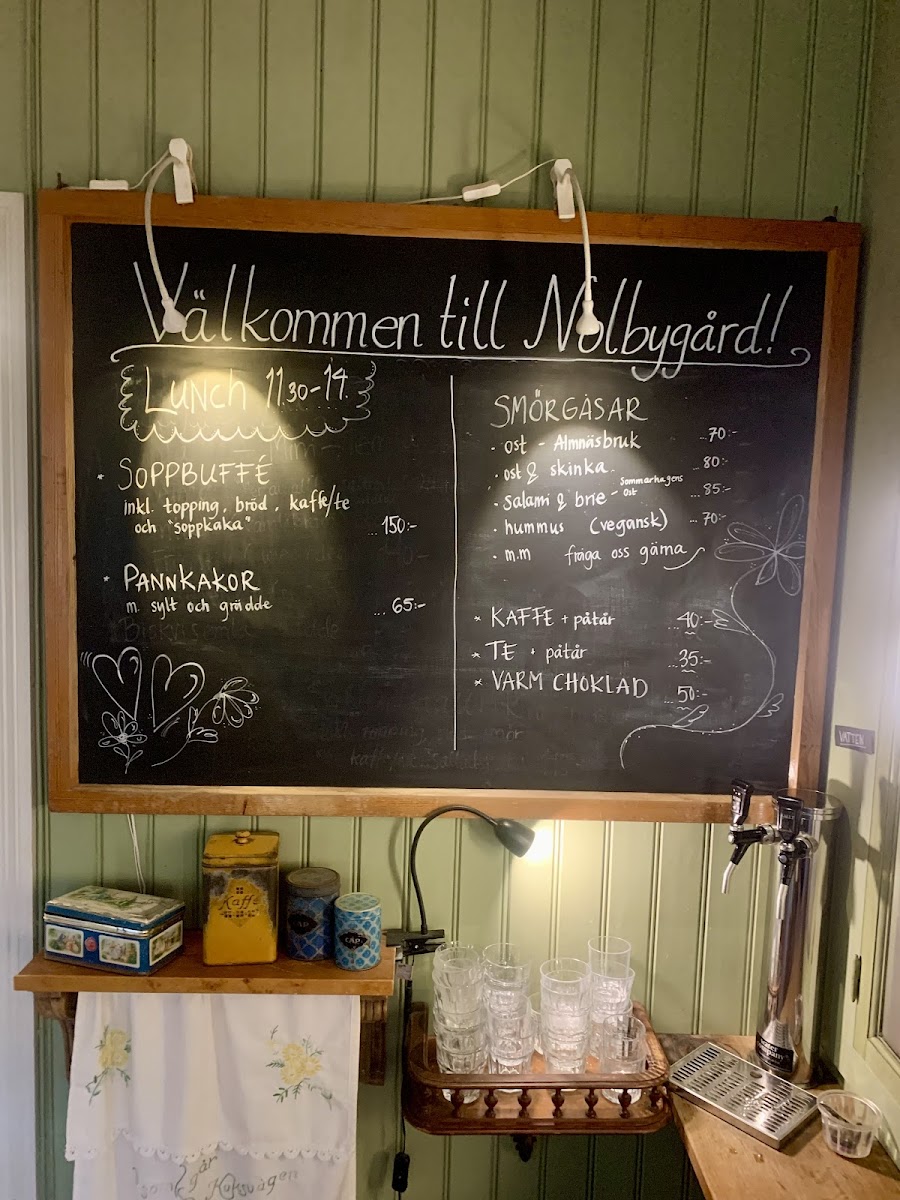 Välkommen till Nolbygård!
LUNCH 11.30-14.
* SOPPBUFFÉ
inkl. topping, bröd, kaffe/te
och "soppkaka"
... 150:-
* PANNKAKOR
m. sylt och grädde
... 65:-
SMÖRGÅSAR
· ost - Almnäsbruk ... 70:-
· ost & skinka ... 80:-
· salami & brie - Sommarhagens ost ... 85:-
· hummus (vegansk) ... 70:-
· m.m fråga oss gärna
* KAFFE + påtår ... 40:-
* TE + påtår ... 35:-
* VARM CHOKLAD ... 50:-
VATTEN
Kaffe